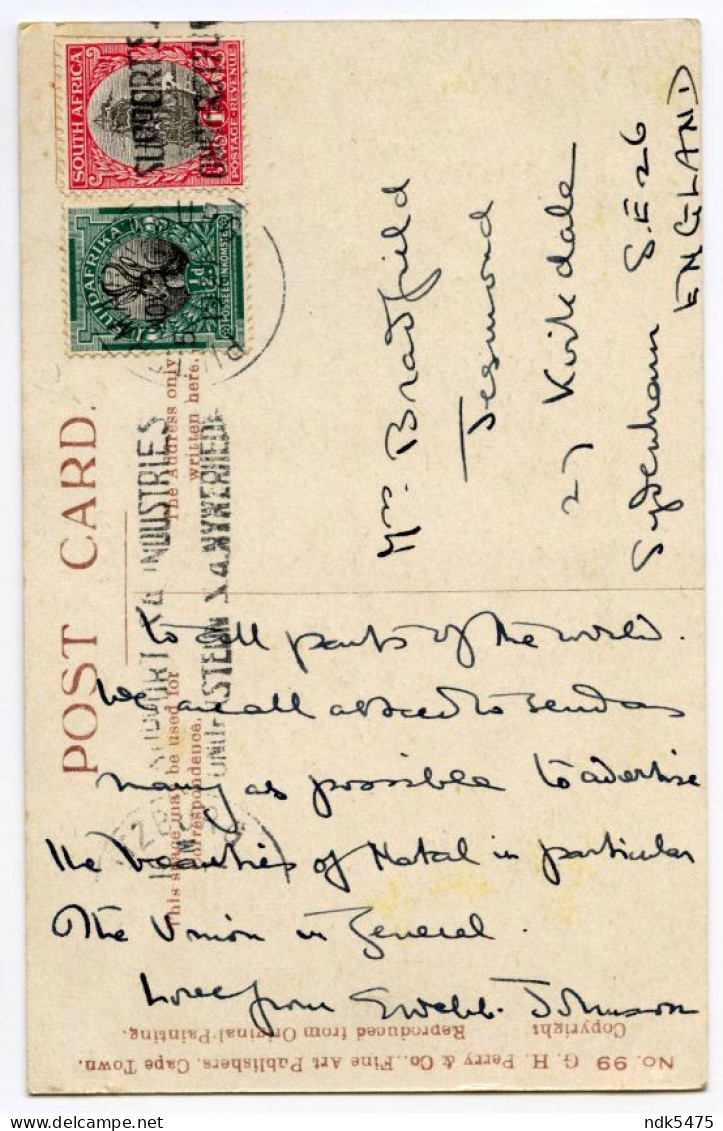 SOUTH AFRICA
POSTAGE-REVENUE
SUIDAFRIKA
POSSEEL-INKOMSTE
½D
SUPPORT S.A. INDUSTRIES
NYWERHEDE
POST CARD.
This space may be used for
correspondence.
The Address only
written here.
to all parts of the world.
We are all asked to send as
many as possible to advertise
the beauties of Natal in particular
The Union in General.
Love from E Webb. Johnson
Mrs. Bradfield
Jesmond
27 Kirkdale
Sydenham S.E 26
ENGLAND
No. 99 G. H. Perry & Co., Fine Art Publishers, Cape Town.
Copyright Reproduced from Original Painting.
delcampe.net
ndk5475